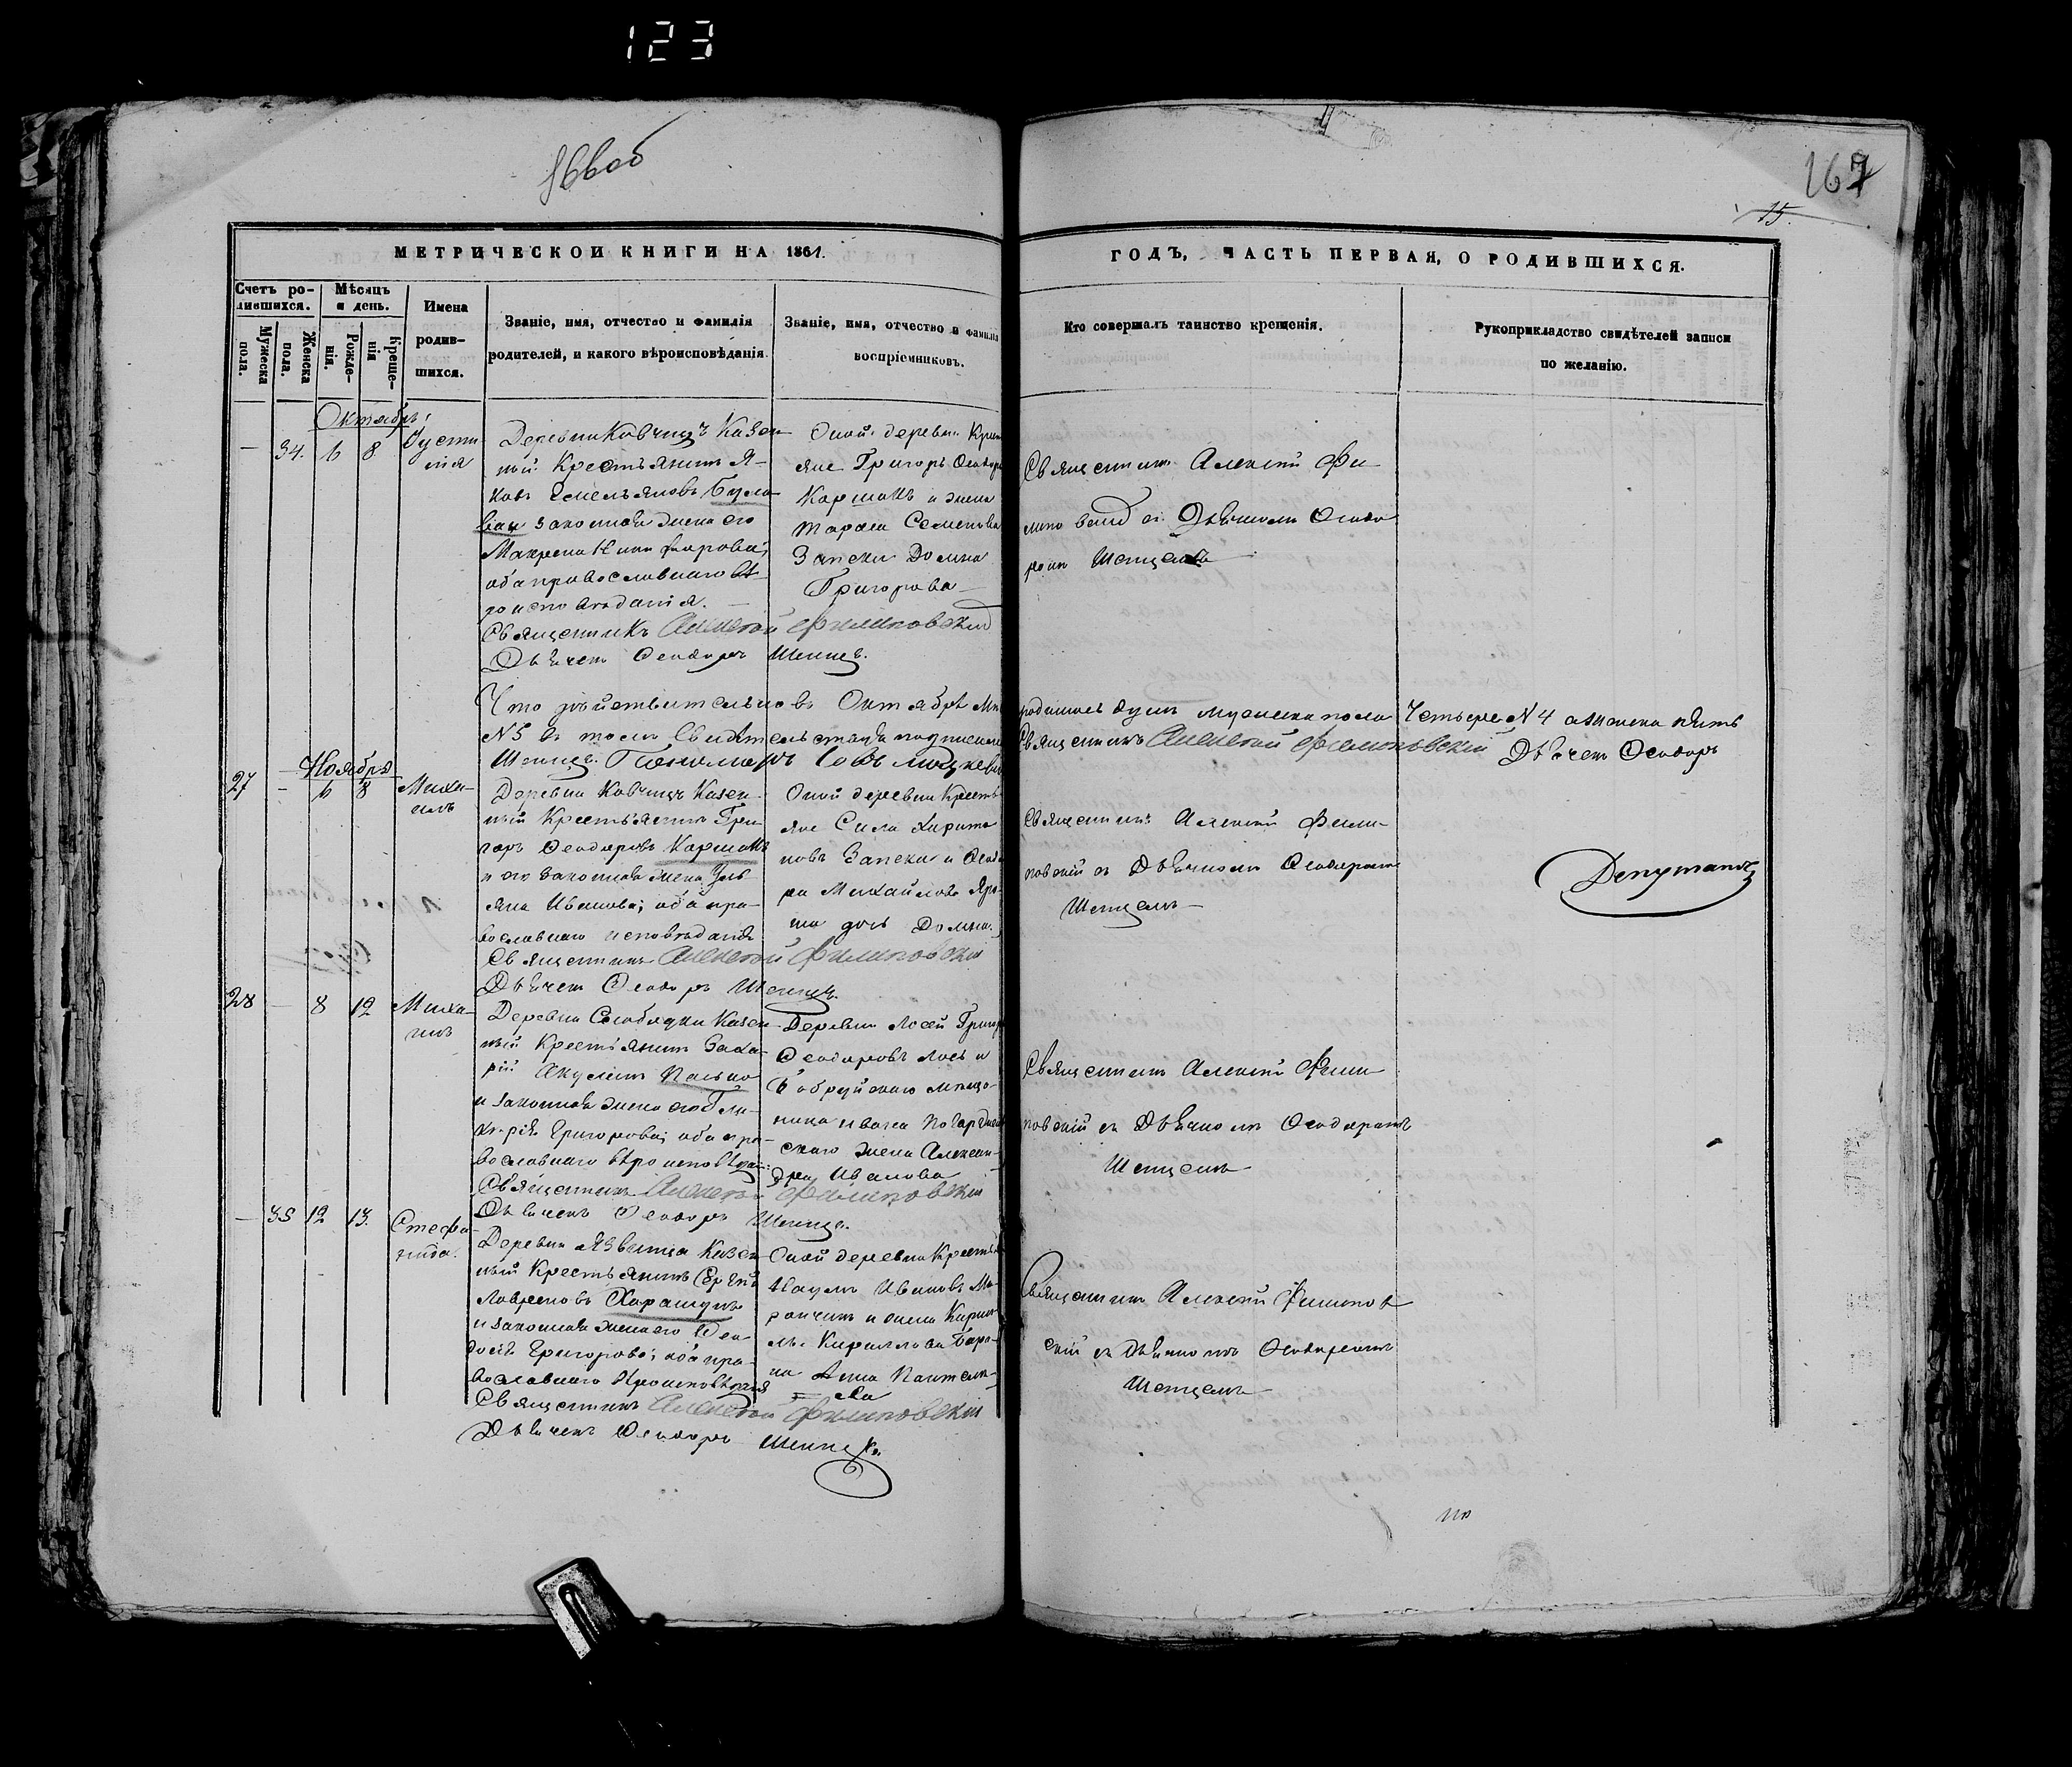 123
166об
167
15.
МЕТРИЧЕСКОЙ КНИГИ НА 1861.
ГОДЪ, ЧАСТЬ ПЕРВАЯ, О РОДИВШИХСЯ.
Счетъ ро-
дившихся.
Мужеска
пола.
Женска
пола.
Мѣсяцъ
и день.
Рожде-
нія.
Креще-
нія
Имена
родив-
шихся.
Званіе, имя, отчество и фамилія
родителей, и какого вѣроисповѣданія.
Званіе, имя, отчество и фамилія
воспріемниковъ.
Кто совершалъ таинство крещенія.
Рукоприкладство свидѣтелей записи
по желанію.
Октябрь
— 34. 6 8 Усти-
нія
Деревни Ковчицъ Казен-
ный Крестьянинъ Я-
ковъ Емельяновъ Була-
ван законная жена его
Макрена Никифорова;
оба православнаго вѣ-
роисповѣданія. —
Священникъ Алексѣй Филиповскій
Дьячекъ Феодоръ Шеппецъ.
Оной деревни Крест
яне Григоръ Феодор
Кормашъ и жена
Тараса Семенова
Запеки Домна
Григорова —
Священникъ Алексѣй Фи-
липовскій съ Дьячкомъ Феодо
ромъ Шепцемъ
Что дѣйствительно въ Октябрѣ М-цѣ родилось душъ мужеска пола Четыре N 4 а женска пять
N 5 въ томъ Свидѣтельствуя подписали Священникъ Алексѣй Филиповскій Дьячекъ Феодоръ
Шеппецъ. Пономарь
Ноябрь
27 — 6 8 Миха-
илъ
Деревни Ковчицъ Казен-
ный Крестьянинъ Гри-
горъ Феодоровъ Кормашъ
и его законная жена Уль-
яна Иванова; оба пра-
вославнаго исповѣданія
Священникъ Алексѣй Филиповскій
Дьячекъ Феодоръ Шеппецъ.
Оной деревни Кресть-
яне Сила Харито-
новъ Запека и Феодо
ра Михайлова Яро-
ша дочь Домна.
Священникъ Алексѣй Фили-
повскій съ Дьячкомъ Феодоромъ
Шепцемъ —
Депутатъ
28 — 8 12 Миха-
илъ
Деревни Слободки Казен-
ный Крестьянинъ Заха-
рій Акулинъ Пасько
и законная жена его Гли-
керія Григорова; оба пра-
вославнаго вѣроисповѣдан:
Священникъ Алексѣй Филиповскій
Дьячекъ Феодоръ Шеппецъ.
Деревни Лосей Григор
Феодоровъ Лось и
Бобруйскаго мѣща-
нина Ивана
скаго жена Алексан-
дра Иванова
Священникъ Алексѣй Фили-
повскій съ Дьячкомъ Феодоромъ
Шепцемъ —
— 35 12 13. Стефа-
нида.
Деревни Язвинца Казен-
ный Крестьянинъ Сергѣй
Лавреновъ Харашунъ
и законная жена его Фео-
досія Григорова; оба пра-
вославнаго вѣроисповѣданія
Священникъ Алексѣй Филиповскій
Дьячекъ Феодоръ Шеппецъ.
Оной деревни Крестья
Наумъ Ивановъ Ми-
рончикъ и жена Кирил-
лы Кириллова Бара-
на Анна Пантеле-
ева
Священникъ Алексѣй Филипов
скій съ Дьячкомъ Феодоромъ
Шепцемъ —